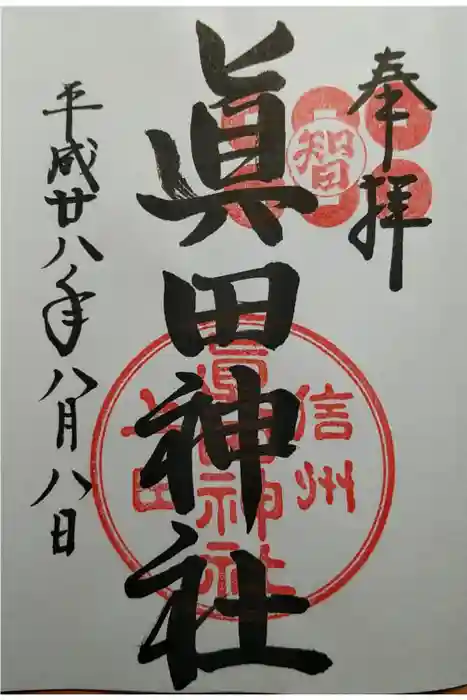 奉拝
智
眞田神社
信州
眞田神社
上田
平成廿八年八月八日